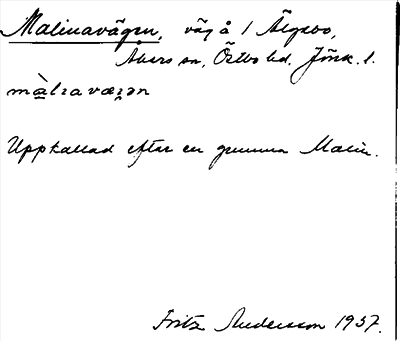 Malinavägen, väg å 1 Älgabo,
Åkers sn, Östbo hd, Jönk. l.
màlɩavæɡən
Uppkallad efter en gumma Malin.
Fritz Andersson 1937.